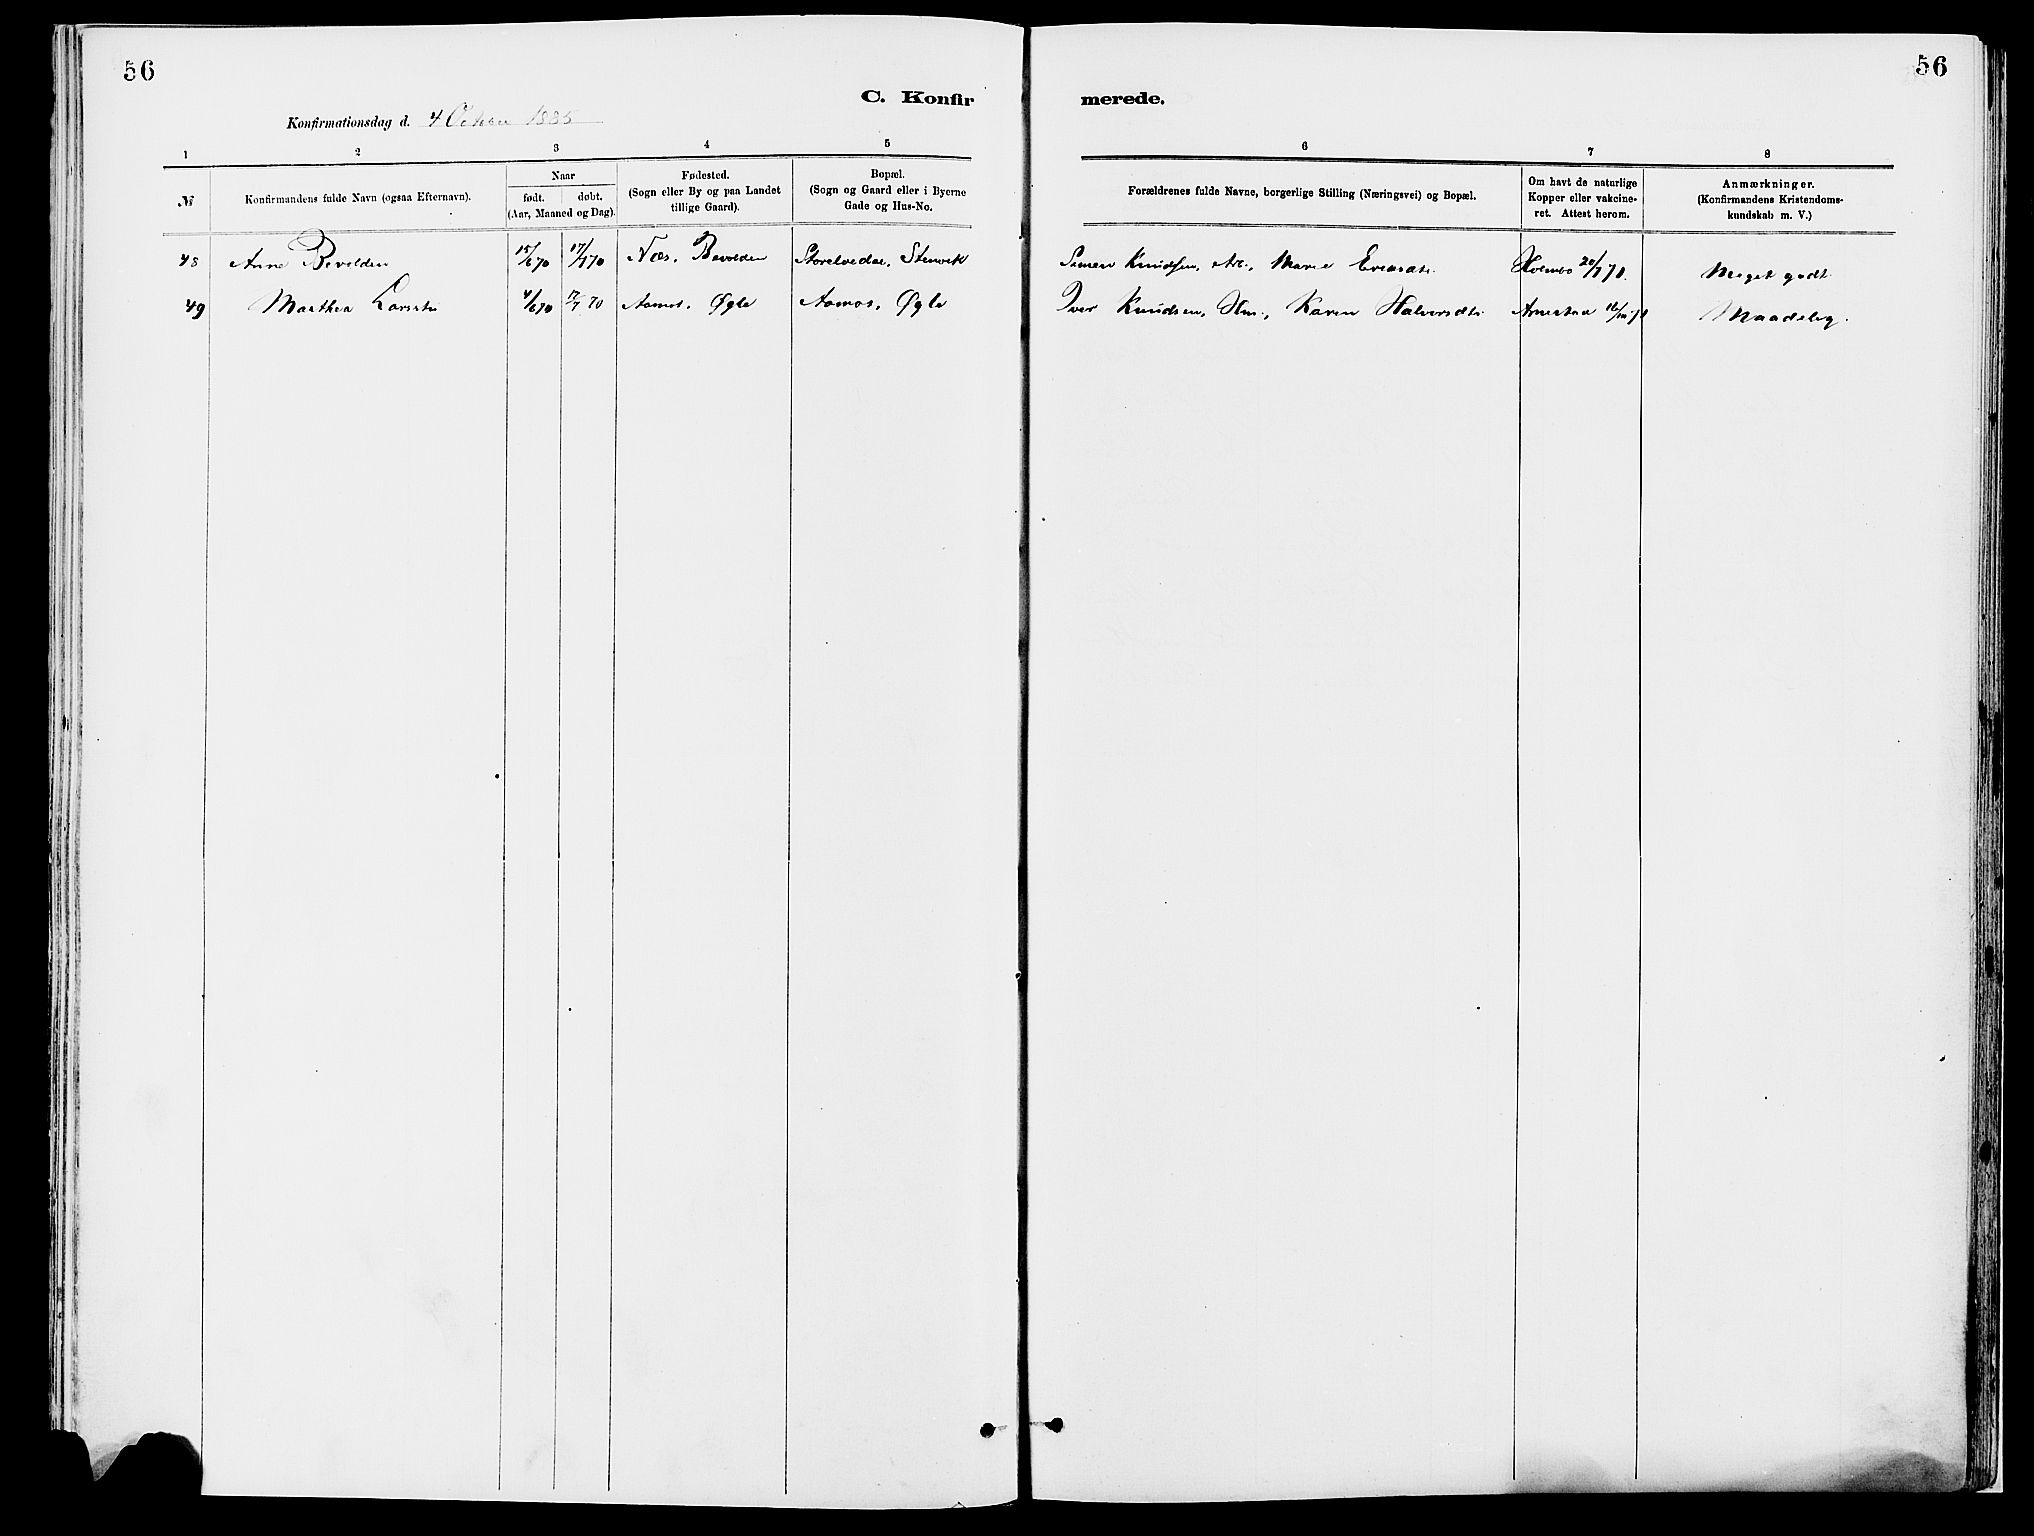 56
56
C. Konfir
merede.
Konfirmationsdag d. 4 October 1885
1 2 3 4 5
6 7 8
№
Konfirmandens fulde Navn (ogsaa Efternavn).
Naar
født. døbt.
(Aar, Maaned og Dag).
Fødested.
(Sogn eller By og paa Landet
tillige Gaard).
Bopæl.
(Sogn og Gaard eller i Byerne
Gade og Hus-No.
Forældrenes fulde Navne, borgerlige Stilling (Næringsvei) og Bopæl.
Om havt de naturlige
Kopper eller vakcine-
ret. Attest herom.
Anmærkninger.
(Konfirmandens Kristendoms-
kundskab m. V.)
48 Anne Bevolden 15/6 70 17/7 70 Næs, Bevolden Storelvedal, Stenvik
Simen Knudsen, Arb., Marie Evensdt. Holmbo 20/7 70. Meget godt.
49 Marthea Larsstu 4/6 70 17/7 70 Aamot, Øgle Aamot, Øgle
Iver Knudsen, Hm., Karen Halvorsdt. Maadelig.